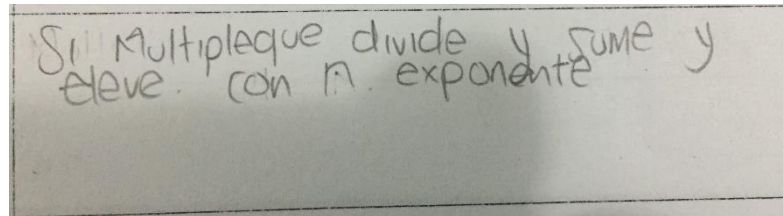 Si Multipleque divide y sume y
eleve. con n. exponente